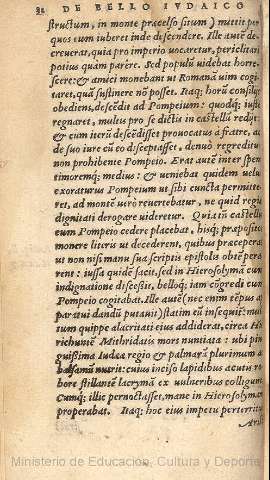 32 DE BELLO IVDAICO
structum, in monte præcelso situm) mittit per
quos eum iuberet inde descendere. Ille autē de-
creuerat, quia pro imperio vocaretur, periclitari
potius quàm parere. Sed populū uidebat horre-
scere: & amici monebant ut Romanā uim cogi
taret, quā sustinere nō posset. Itaq; horū consilijs
obediens, descēdit ad Pompeium: quodq; iustè
regnaret, multis pro se dictis in castellū redijt:
& cum iterū descēdisset prouocatus à fratre, ac
de suo iure cū eo disceptasset, denuò regreditur
non prohibente Pompeio. Erat autē inter spem
timoremq; medius: & ueniebat quidem uelut
exoraturus Pompeium ut sibi cuncta permitte-
ret, ad montē uerò reuertebatur, ne quid regiæ
dignitati derogare uideretur. Quia tñ castellis
eum Pompeio cedere placebat, hisq; præpositos
monere literis ut decederent, quibus præceperat
ut non nisi manu sua scriptis epistolis obtēpera
rent: iussa quidē facit, sed in Hierosolyma cum
indignatione discessit, belloq; iam cōgredi cum
Pompeio cogitabat. Ille autē (nec enim tēpus ap
paratui dandū putauit) statim eū insequit: mul
tum quippe alacritati eius addiderat, circa Hie
richuntē Mithridatis mors nuntiata: ubi pin
guissima Iudææ regio & palmarū plurimum ac
balsamū nutrit: cuius inciso lapidibus acutis ro
bore stillantē lacrymā ex uulneribus colligunt.
Cumq; illic pernoctasset, mane in Hierosolymam
properabat. Itaq; hoc eius impetu perterritus
Ministerio de Educación, Cultura y Deporte